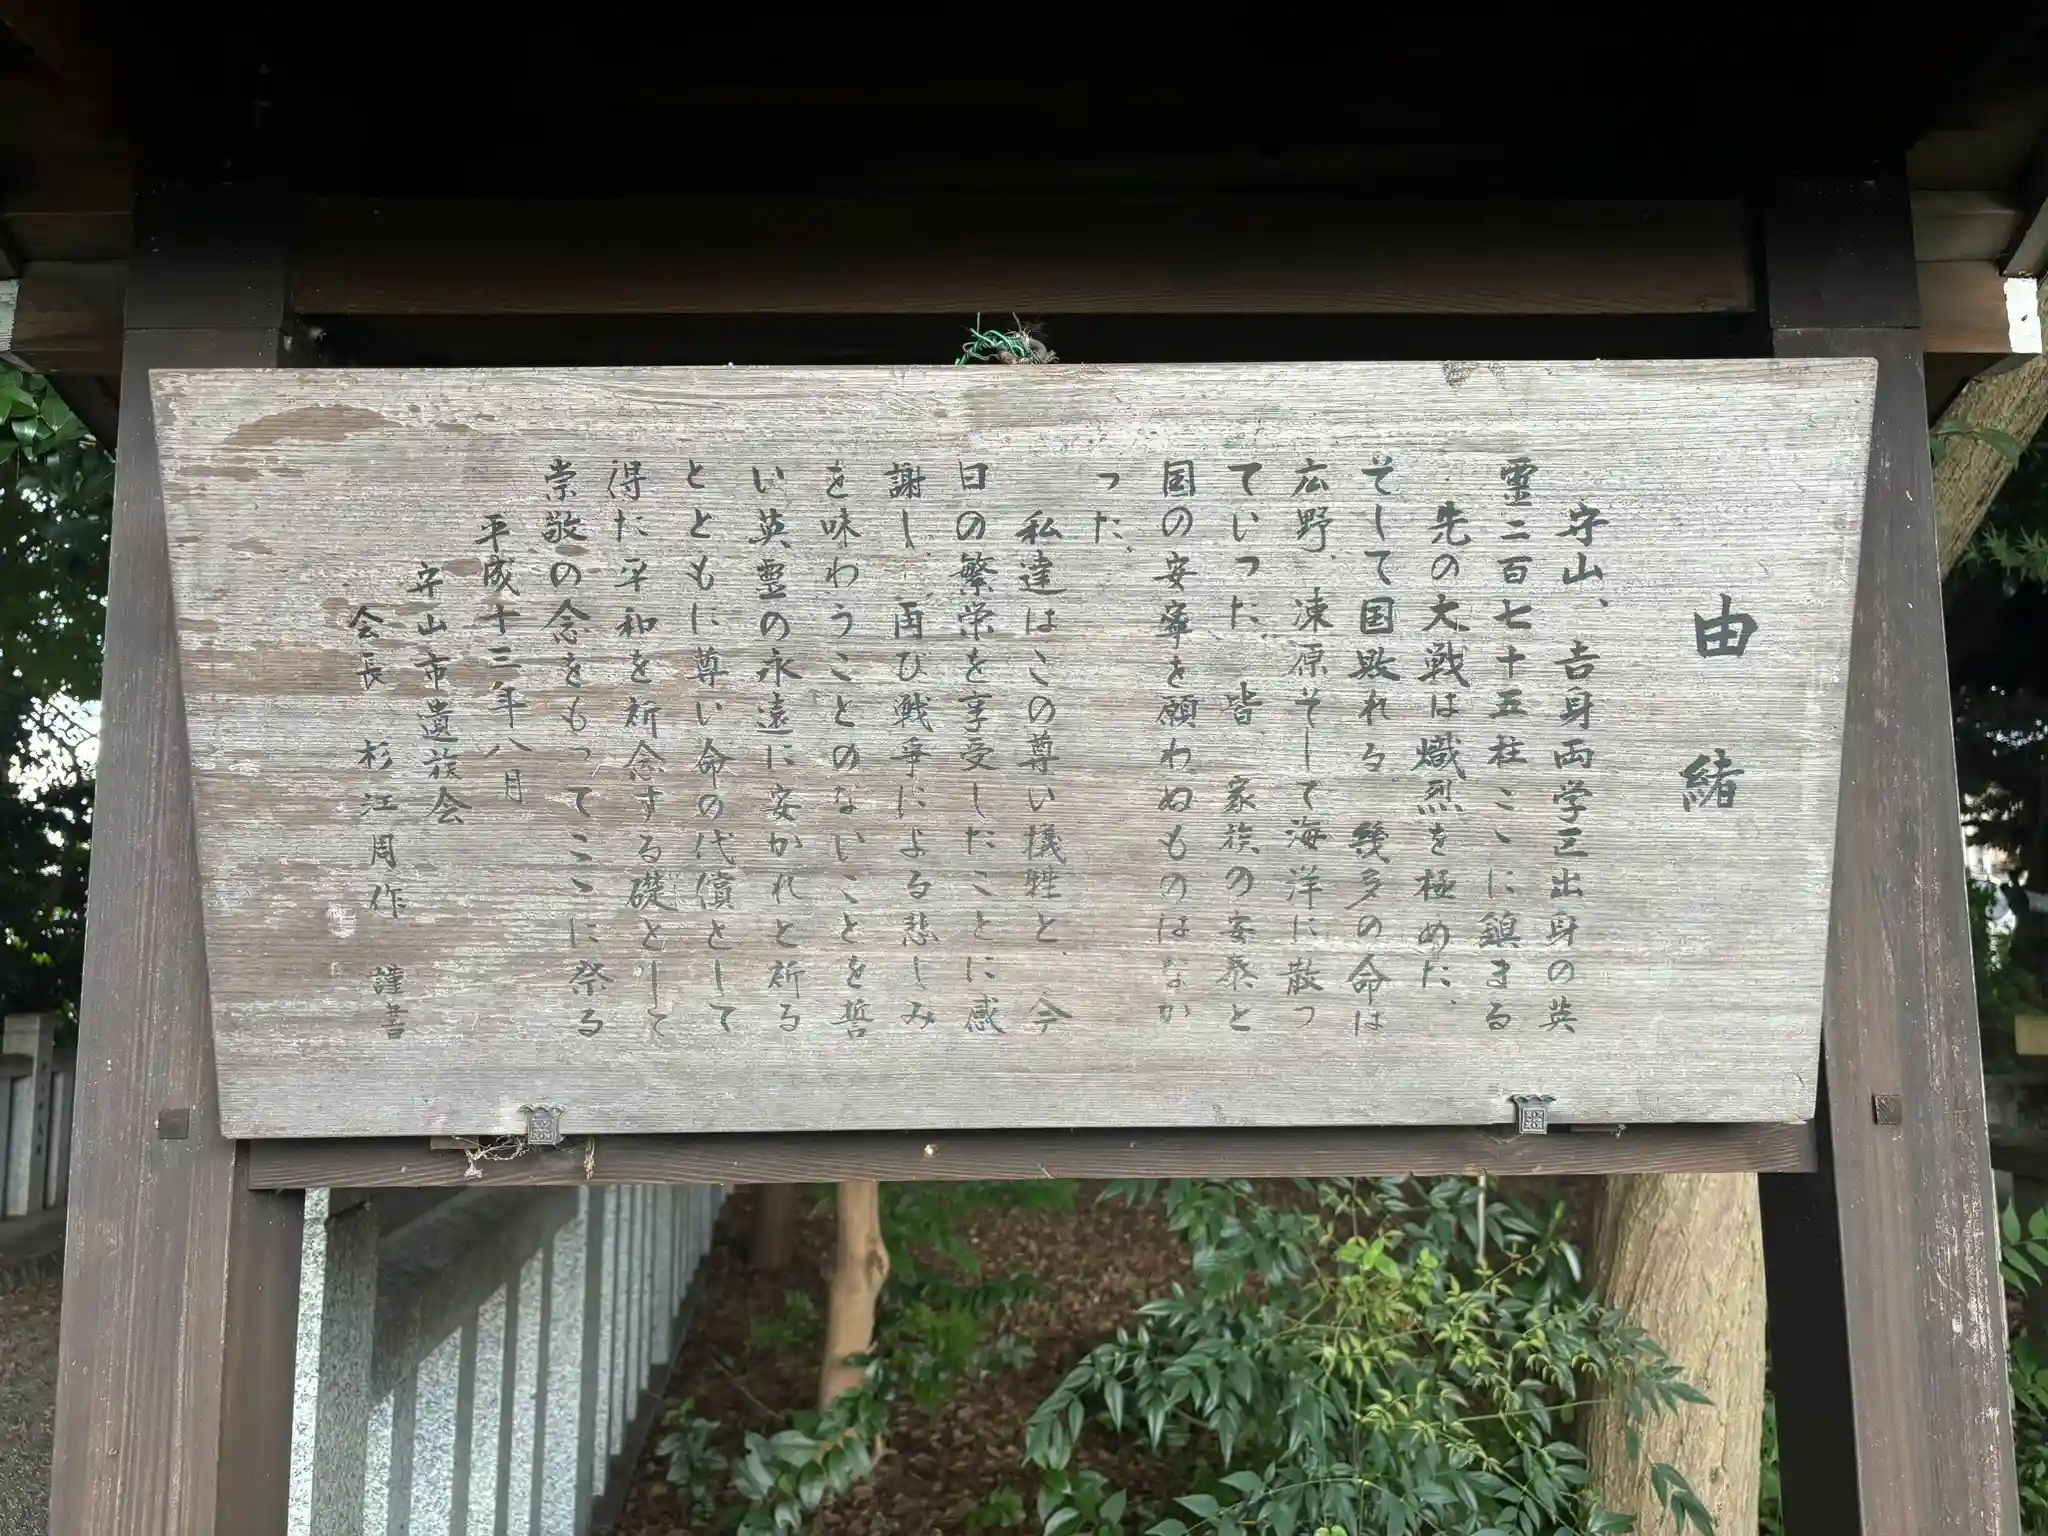 由緒
守山、吉身両学区出身の英
霊二百七十五柱こゝに鎮まる
先の大戦は熾烈を極めた、
そして国敗れる 幾多の命は
広野、凍原そして海洋に散っ
ていった、皆、家族の安泰と
国の安寧を願わぬものはなか
った、
私達はこの尊い犠牲と、今
日の繁栄を享受したことに感
謝し、再び戦争による悲しみ
を味わうことのないことを誓
い英霊の永遠に安かれと祈る
とともに尊い命の代償として
得た平和を祈念する礎として
崇敬の念をもってこゝに祭る
平成十三年八月
守山市遺族会
会長 杉江周作 謹書